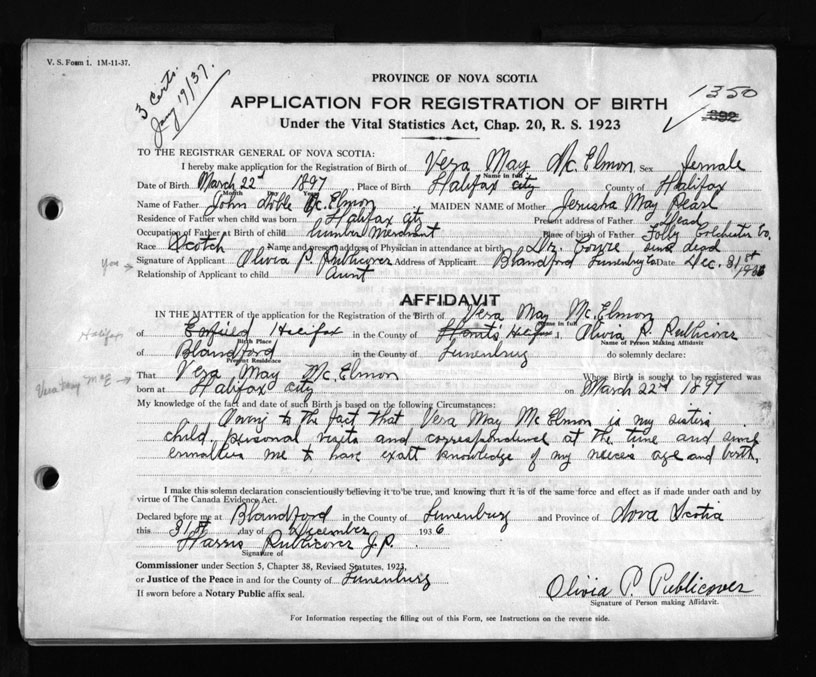 V. S. Form 1. 1M-11-37.
3 Certs.
Jany 19/37.
PROVINCE OF NOVA SCOTIA
1350
APPLICATION FOR REGISTRATION OF BIRTH
Under the Vital Statistics Act, Chap. 20, R. S. 1923
TO THE REGISTRAR GENERAL OF NOVA SCOTIA:
I hereby make application for the Registration of Birth of Vera May Mc.Elmon Sex female
Name in full
Date of Birth March 22nd 1897, Place of Birth Halifax City County of Halifax
Month Day Year
Name of Father John Noble Mc.Elmon, MAIDEN NAME of Mother Jerusha May Pearl
Residence of Father when child was born Halifax City Present address of Father Dead
Occupation of Father at Birth of child Lumber Merchant Place of birth of Father Folly Colchester Co.
Race Scotch Name and present address of Physician in attendance at birth Dr. Cowie since dead
Signature of Applicant Olivia P. Publicover Address of Applicant Blandford Lunenburg Co Date Dec. 31st 1936
Relationship of Applicant to child Aunt
AFFIDAVIT
IN THE MATTER of the application for the Registration of the Birth of Vera May Mc.Elmon
Name in full
Halifax of Halifax in the County of Hants Halifax I, Olivia P. Publicover
Birth Place Name of Person Making Affidavit
of Blandford in the County of Lunenburg do solemnly declare:
Present Residence
That Vera May Mc.Elmon Whose Birth is sought to be registered was
born at Halifax City on March 22nd 1897
My knowledge of the fact and date of such Birth is based on the following Circumstances:
Owing to the fact that Vera May McElmon is my sisters
child personal visits and correspondence at the time and since
ennables me to have exact knowledge of my neices age and birth.
I make this solemn declaration conscientiously believing it to be true, and knowing that it is of the same force and effect as if made under oath and by
virtue of The Canada Evidence Act.
Declared before me at Blandford in the County of Lunenburg and Province of Nova Scotia
this 31st day of December 1936
Harris Publicover J.P.
Signature of
Commissioner under Section 5, Chapter 38, Revised Statutes, 1923,
or Justice of the Peace in and for the County of Lunenburg
If sworn before a Notary Public affix seal.
Olivia P. Publicover
Signature of Person making Affidavit.
For Information respecting the filling out of this Form, see Instructions on the reverse side.